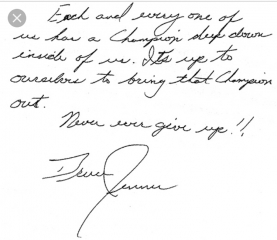 Each and every one of
us has a Champion deep down
inside of us. Its up to
ourselves to bring that Champion
out.
Never ever give up!!
Bruce Jenner